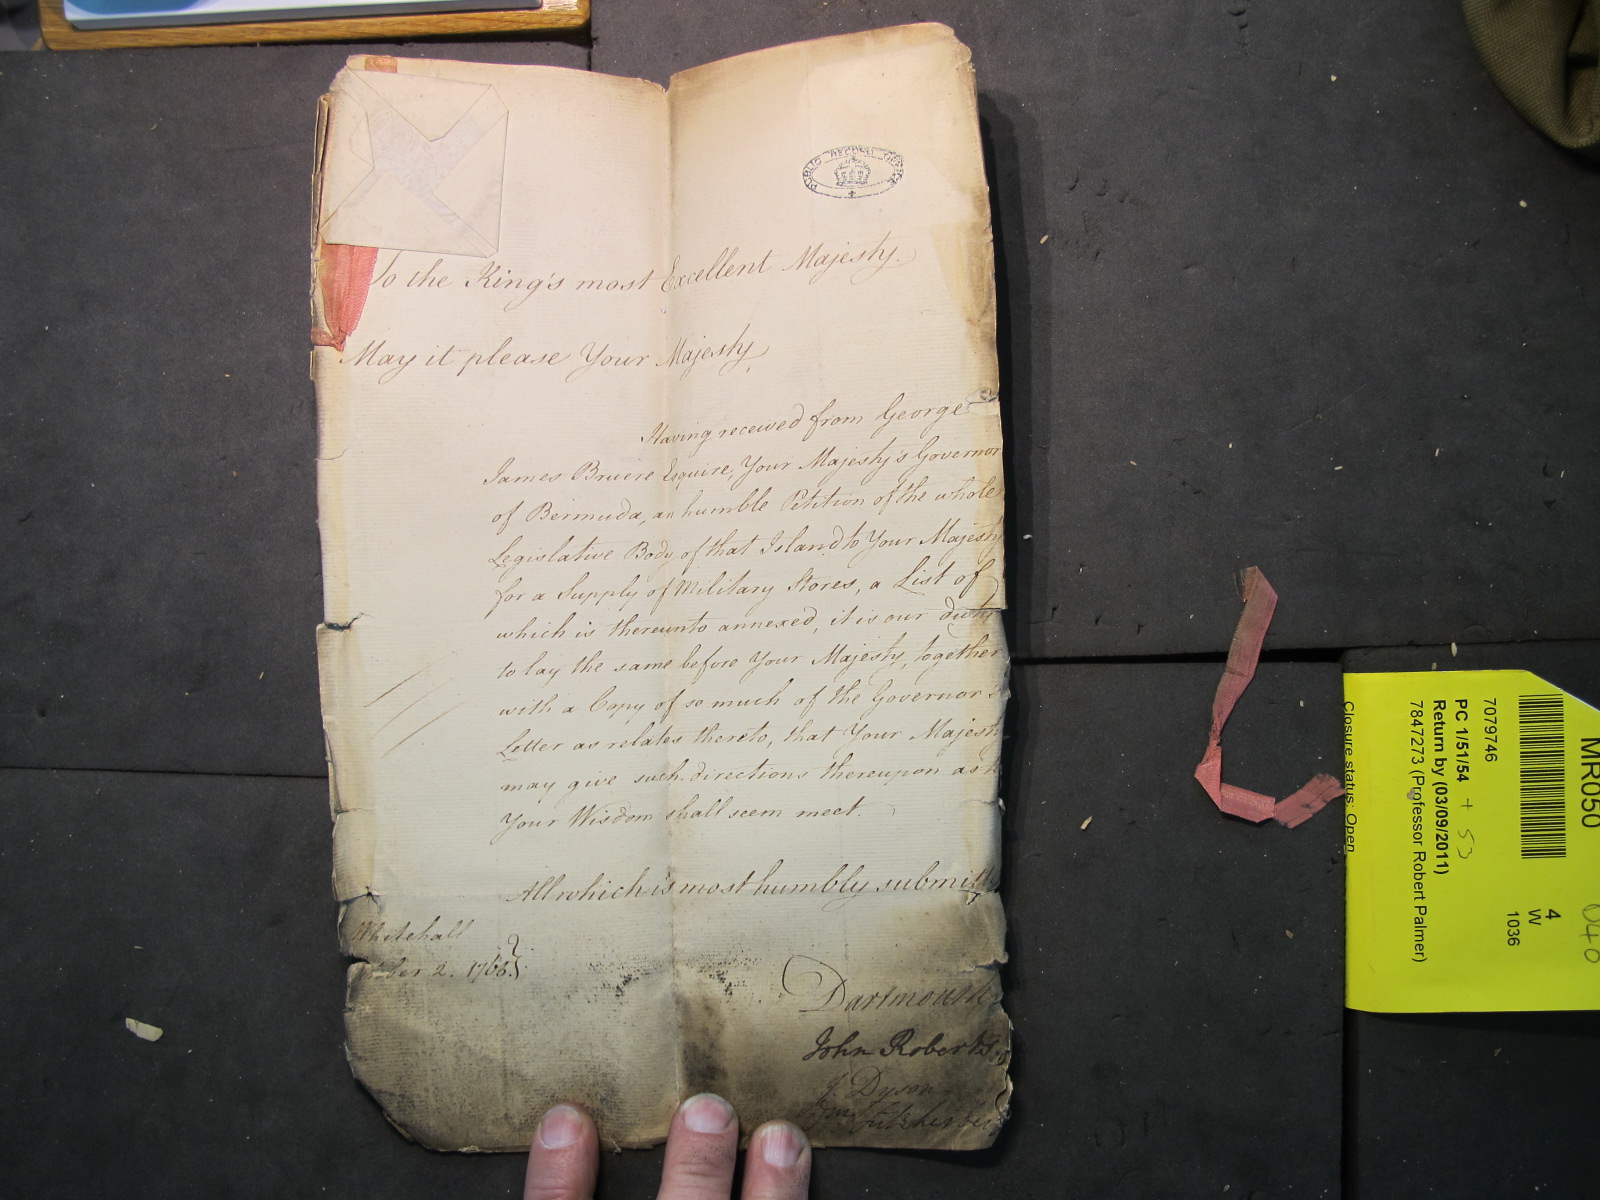 PUBLIC RECORD OFFICE
To the King's most Excellent Majesty.
May it please Your Majesty,
Having received from George
James Bruere Esquire, Your Majesty's Governor
of Bermuda, an humble Petition of the whole
Legislative Body of that Island to Your Majesty
for a Supply of Military Stores, a List of
which is thereunto annexed, it is our duty
to lay the same before Your Majesty, together
with a Copy of so much of the Governor's
Letter as relates thereto, that Your Majesty
may give such directions thereupon as
Your Wisdom shall seem meet.
All which is most humbly submitt
Whitehall
ber 2. 1765.
Dartmouth
John Roberts
J. Dyson
Wm Fitzherbert
MR050
040
4
W
1036
7079746
PC 1/51/54 + 53
Return by (03/09/2011)
7847273 (Professor Robert Palmer)
Closure status: Open